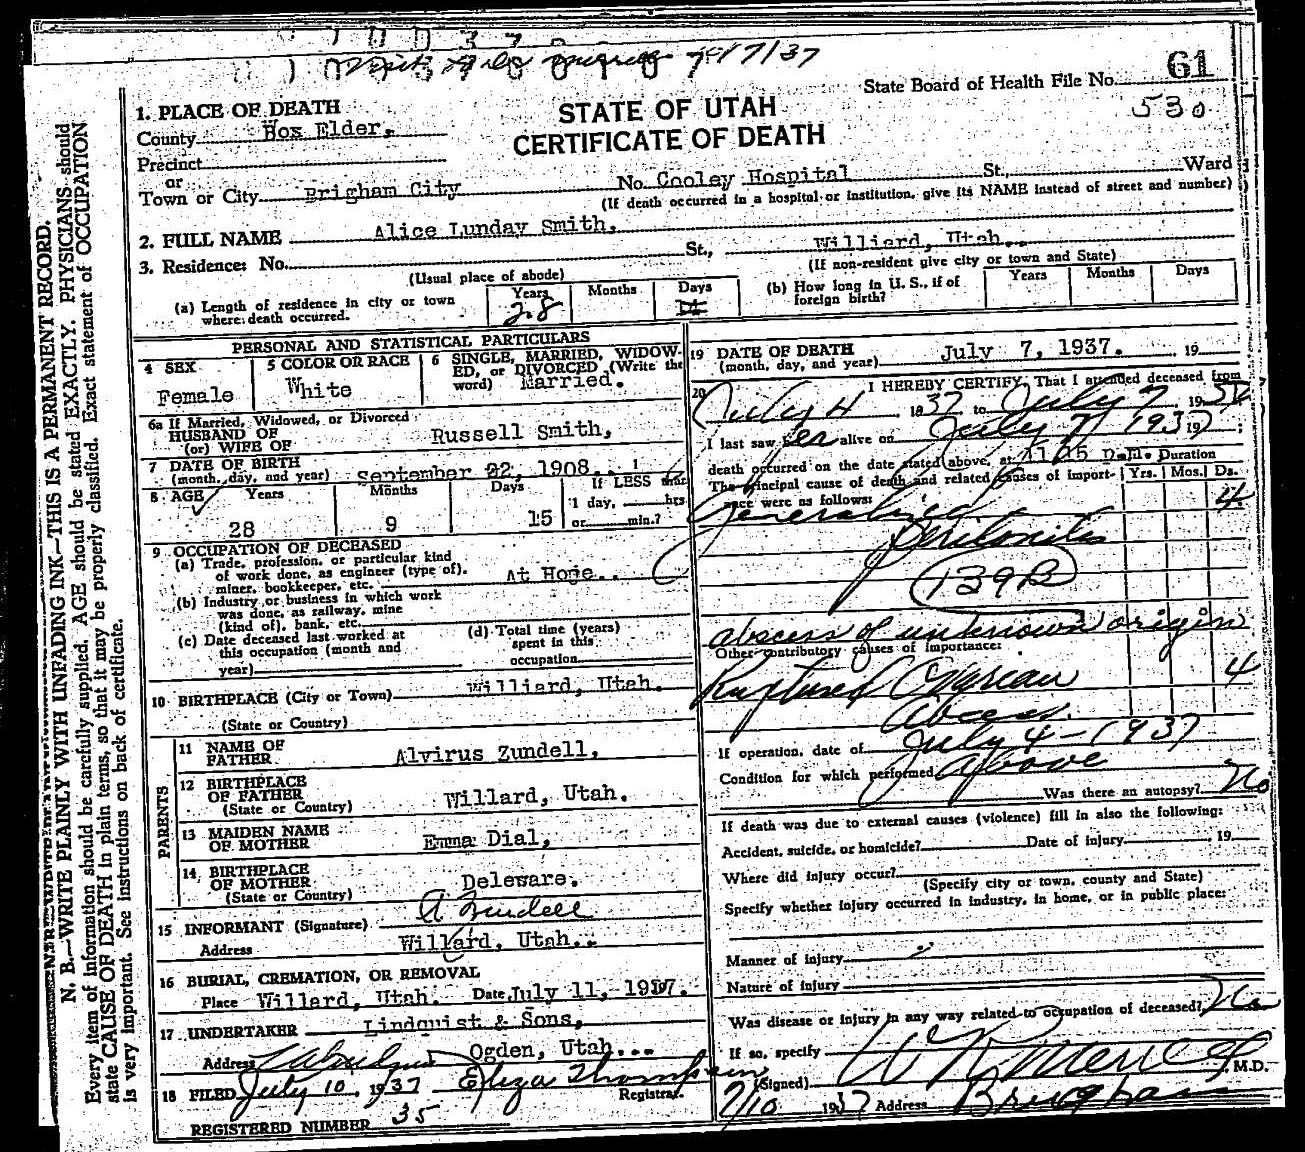 7/17/37
State Board of Health File No. 61
530
STATE OF UTAH
CERTIFICATE OF DEATH
1. PLACE OF DEATH
County Hox Elder.
Precinct
or
Town or City Brigham City No. Cooley Hospital St., Ward
(If death occurred in a hospital or institution, give its NAME instead of street and number)
2. FULL NAME Alice Lunday Smith,
3. Residence: No. St., Williard, Utah..
(Usual place of abode) (If non-resident give city or town and State)
(a) Length of residence in city or town where death occurred. Years 28 Months Days
(b) How long in U. S., if of foreign birth? Years Months Days
PERSONAL AND STATISTICAL PARTICULARS
4 SEX Female
5 COLOR OR RACE White
6 SINGLE, MARRIED, WIDOWED, or DIVORCED (Write the word) Married.
6a If Married, Widowed, or Divorced
HUSBAND OF
(or) WIFE OF Russell Smith,
7 DATE OF BIRTH
(month, day, and year) September 22, 1908..
8 AGE Years 28 Months 9 Days 15 If LESS than 1 day, hrs or min.?
9 OCCUPATION OF DECEASED
(a) Trade, profession, or particular kind
of work done, as engineer (type of),
miner, bookkeeper, etc. At Hoge..
(b) Industry or business in which work
was done, as railway, mine
(kind of), bank, etc.
(c) Date deceased last worked at
this occupation (month and
year)
(d) Total time (years)
spent in this
occupation
10 BIRTHPLACE (City or Town) Williard, Utah.
(State or Country)
PARENTS
11 NAME OF
FATHER Alvirus Zundell,
12 BIRTHPLACE
OF FATHER
(State or Country) Willard, Utah.
13 MAIDEN NAME
OF MOTHER Emma Dial,
14 BIRTHPLACE
OF MOTHER
(State or Country) Deleware.
15 INFORMANT (Signature) A Zundell
Address Willard, Utah..
16 BURIAL, CREMATION, OR REMOVAL
Place Willard, Utah. Date July 11, 1937.
17 UNDERTAKER Lindquist & Sons,
Address Ogden, Utah...
18 FILED July 10, 1937 Eliza Thompson
Registrar.
REGISTERED NUMBER 35
19 DATE OF DEATH
(month, day, and year) July 7, 1937. 19
20 I HEREBY CERTIFY, That I attended deceased from
July 4 1937 to July 7 1937
I last saw her alive on July 7 1937;
death occurred on the date stated above, at 11:15 Duration
The principal cause of death and related causes of importance were as follows: Yrs. Mos. Ds.
Generalized 4
Peritonitis
139B
abscess of unknown origin
Other contributory causes of importance:
Ruptured Ovarian 4
Abcess.
If operation, date of July 4-1937
Condition for which performed Above
Was there an autopsy? No
If death was due to external causes (violence) fill in also the following:
Accident, suicide, or homicide? Date of injury 19
Where did injury occur?
(Specify city or town, county and State)
Specify whether injury occurred in industry, in home, or in public place:
Manner of injury
Nature of injury
Was disease or injury in any way related to occupation of deceased? No
If so, specify
(Signed) W R Merrell M.D.
7/10 1937 Address Brigham
N. B.—WRITE PLAINLY WITH UNFADING INK—THIS IS A PERMANENT RECORD.
Every item of information should be carefully supplied. AGE should be stated EXACTLY. PHYSICIANS should
state CAUSE OF DEATH in plain terms, so that it may be properly classified. Exact statement of OCCUPATION
is very important. See instructions on back of certificate.